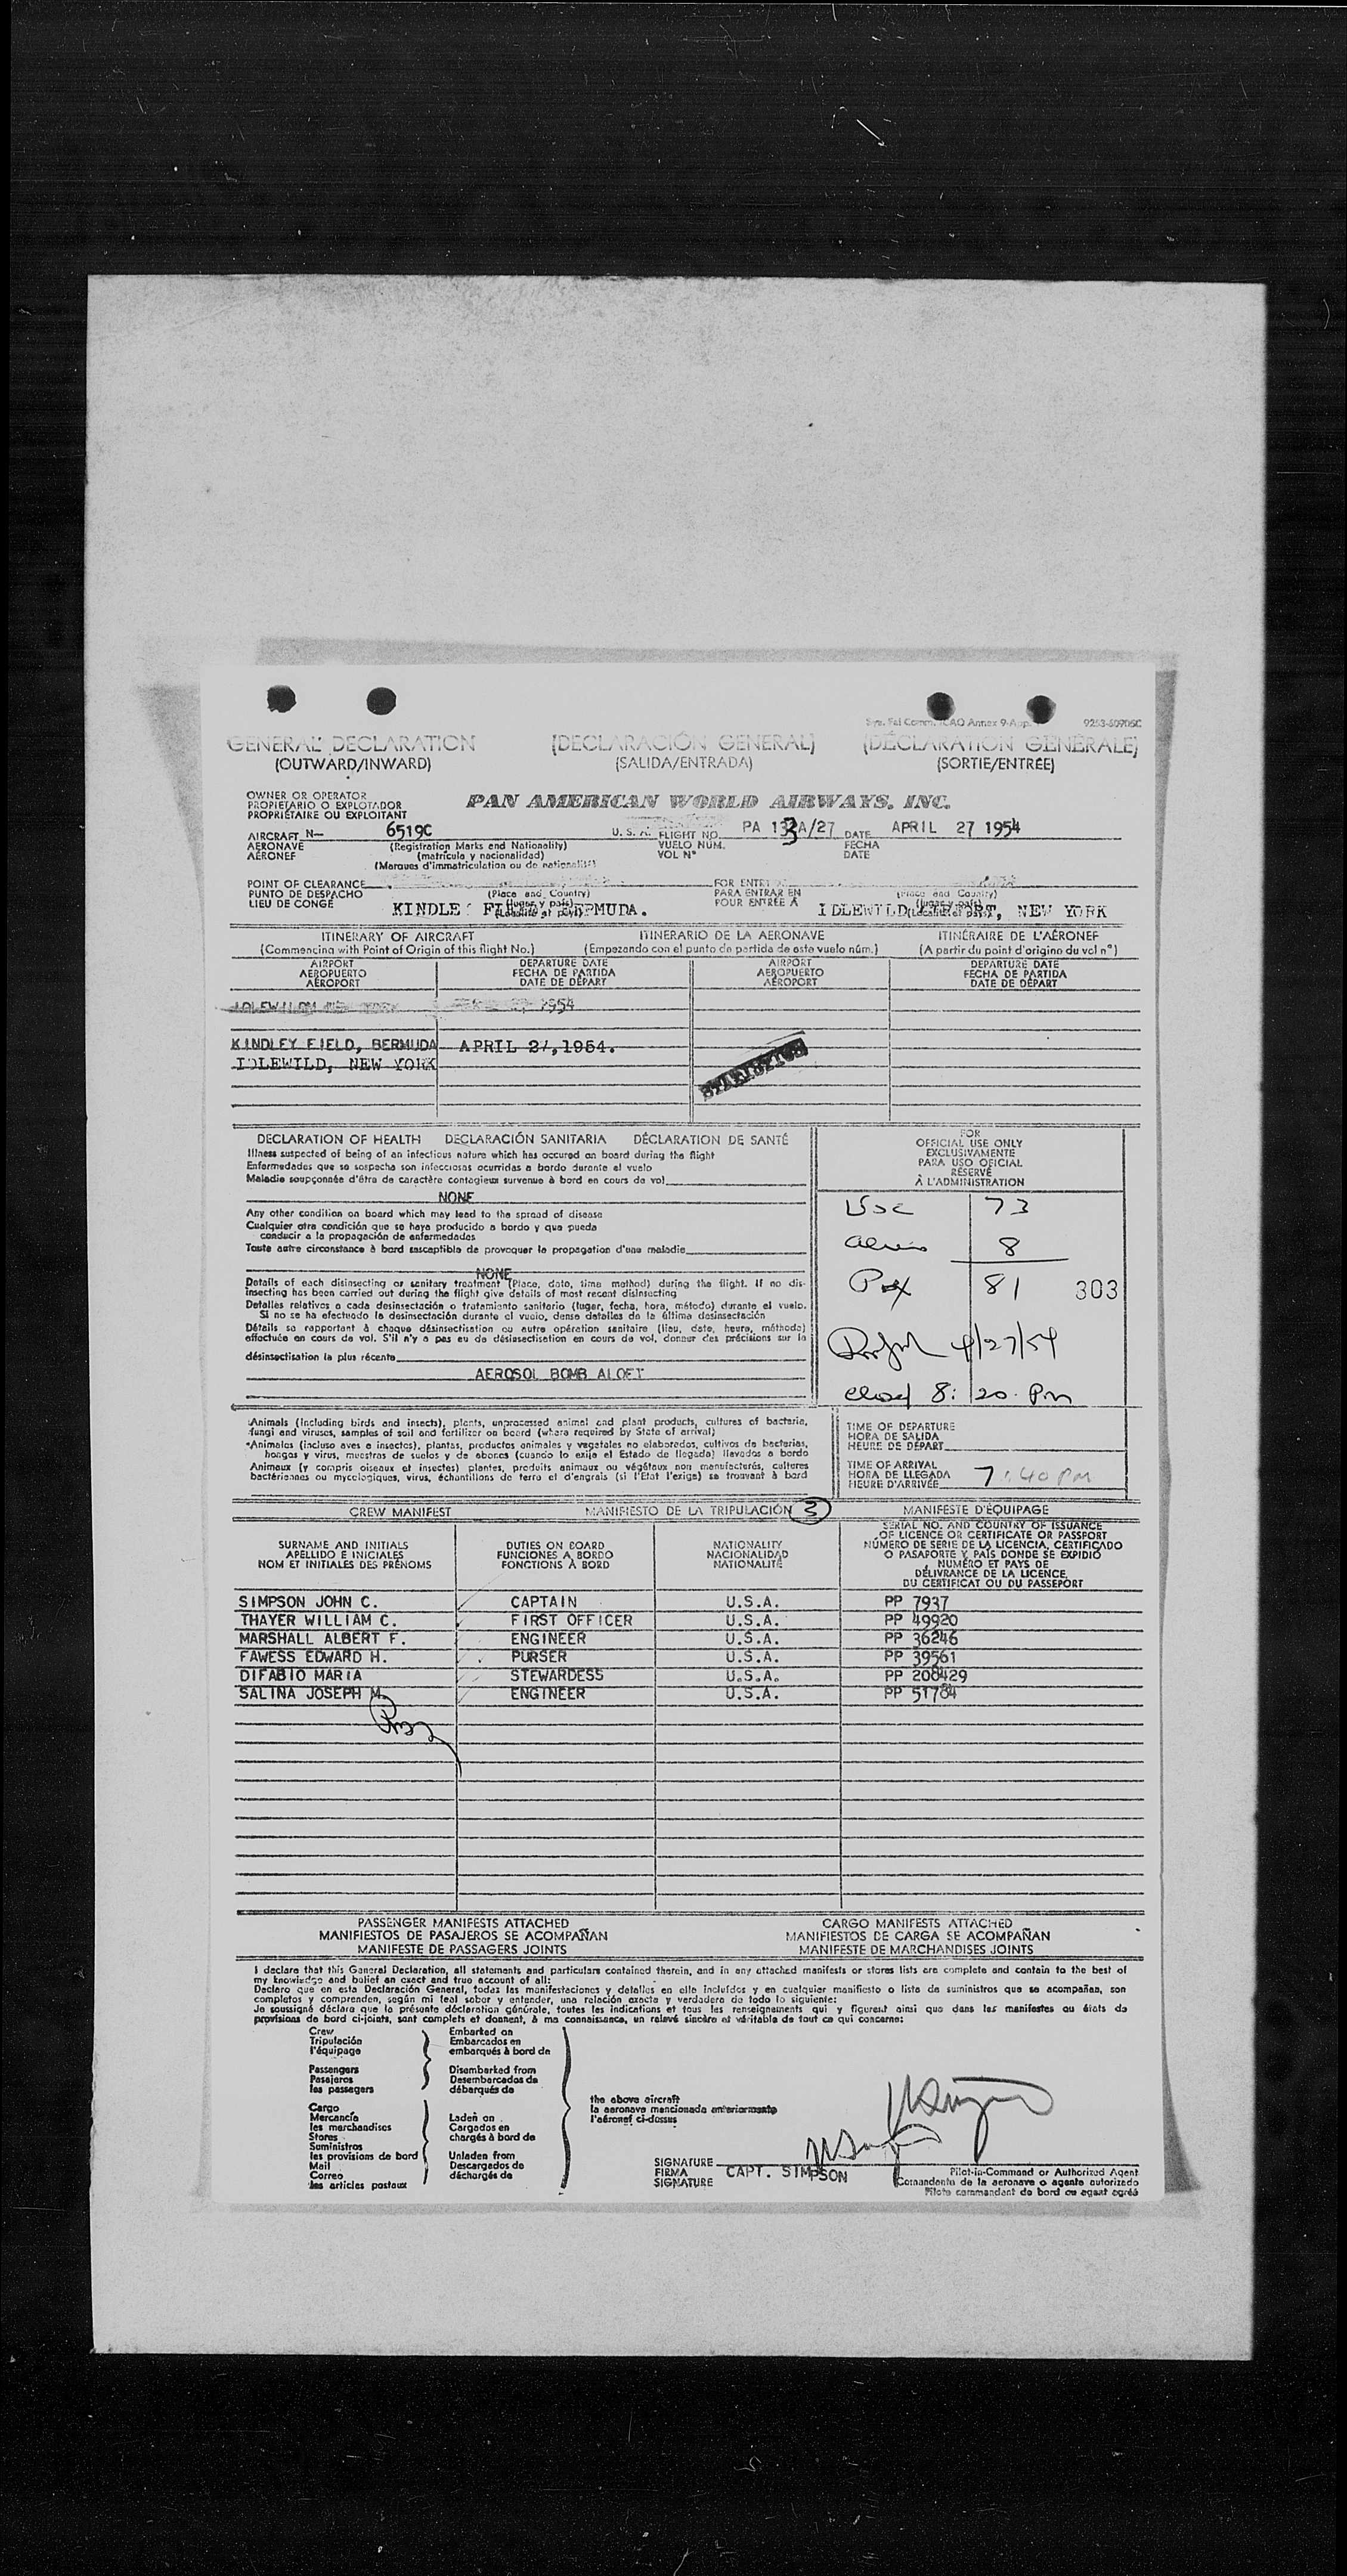 Sys. Fal Comm. ICAO Annex 9-App. 9253-50905C
GENERAL DECLARATION [DECLARACIÓN GENERAL] (DÉCLARATION GÉNÉRALE)
(OUTWARD/INWARD) (SALIDA/ENTRADA) (SORTIE/ENTRÉE)
OWNER OR OPERATOR
PROPIETARIO O EXPLOTADOR
PROPRIÉTAIRE OU EXPLOITANT
PAN AMERICAN WORLD AIRWAYS, INC.
AIRCRAFT N- 6519C U. S. A. FLIGHT NO. PA 133A/27 DATE APRIL 27 1954
AERONAVE (Registration Marks and Nationality) VUELO NÚM. FECHA
AÉRONEF (matrícula y nacionalidad) VOL N° DATE
(Marques d'immatriculation ou de nationalité)
POINT OF CLEARANCE FOR ENTRY
PUNTO DE DESPACHO (Place and Country) PARA ENTRAR EN (Place and Country)
LIEU DE CONGÉ (lugar y país) POUR ENTRÉE À (lugar y país)
KINDLEY FIELD, BERMUDA. IDLEWILD AIRPORT, NEW YORK
ITINERARY OF AIRCRAFT ITINERARIO DE LA AERONAVE ITINÉRAIRE DE L'AÉRONEF
(Commencing with Point of Origin of this flight No.) (Empezando con el punto de partida de este vuelo núm.) (A partir du point d'origine du vol n°)
AIRPORT DEPARTURE DATE AIRPORT DEPARTURE DATE
AEROPUERTO FECHA DE PARTIDA AEROPUERTO FECHA DE PARTIDA
AÉROPORT DATE DE DÉPART AÉROPORT DATE DE DÉPART
1954
KINDLEY FIELD, BERMUDA APRIL 27, 1954.
IDLEWILD, NEW YORK
DECLARATION OF HEALTH DECLARACIÓN SANITARIA DÉCLARATION DE SANTÉ
Illness suspected of being of an infectious nature which has occured on board during the flight
Enfermedades que se sospecha son infecciosas ocurridas a bordo durante el vuelo
Maladie soupçonnée d'être de caractère contagieux survenue à bord en cours de vol
NONE
Any other condition on board which may lead to the spread of disease
Cualquier otra condición que se haya producido a bordo y que pueda
conducir a la propagación de enfermedades
Toute autre circonstance à bord susceptible de provoquer la propagation d'une maladie
NONE
Details of each disinsecting or sanitary treatment (Place, date, time method) during the flight. If no dis-
insecting has been carried out during the flight give details of most recent disinsecting
Detalles relativos a cada desinsectación o tratamiento sanitario (lugar, fecha, hora, método) durante el vuelo.
Si no se ha efectuado la desinsectación durante el vuelo, dense detalles de la última desinsectación
Détails se rapportant à chaque désinsectisation ou autre opération sanitaire (lieu, date, heure, méthode)
effectuée en cours de vol. S'il n'y a pas eu de désinsectisation en cours de vol, donner des précisions sur la
désinsectisation la plus récente
AEROSOL BOMB ALOFT
FOR
OFFICIAL USE ONLY
EXCLUSIVAMENTE
PARA USO OFICIAL
RÉSERVÉ
À L'ADMINISTRATION
USC 73
Aliens 8
Pax 81 303
4/27/54
closed 8:20 Pm
Animals (including birds and insects), plants, unprocessed animal and plant products, cultures of bacteria,
fungi and viruses, samples of soil and fertilizer on board (where required by State of arrival)
Animales (incluso aves e insectos), plantas, productos animales y vegetales no elaborados, cultivos de bacterias,
hongos y virus, muestras de suelos y de abonos (cuando lo exija el Estado de llegada) llevados a bordo
Animaux (y compris oiseaux et insectes) plantes, produits animaux ou végétaux non manufacturés, cultures
bactériennes ou mycologiques, virus, échantillons de terre et d'engrais (si l'Etat l'exige) se trouvant à bord
TIME OF DEPARTURE
HORA DE SALIDA
HEURE DE DÉPART
TIME OF ARRIVAL
HORA DE LLEGADA 7:40 PM
HEURE D'ARRIVÉE
CREW MANIFEST MANIFIESTO DE LA TRIPULACIÓN 3 MANIFESTE D'ÉQUIPAGE
SURNAME AND INITIALS
APELLIDO E INICIALES
NOM ET INITIALES DES PRÉNOMS
DUTIES ON BOARD
FUNCIONES A BORDO
FONCTIONS À BORD
NATIONALITY
NACIONALIDAD
NATIONALITÉ
SERIAL NO. AND COUNTRY OF ISSUANCE
OF LICENCE OR CERTIFICATE OR PASSPORT
NÚMERO DE SERIE DE LA LICENCIA, CERTIFICADO
O PASAPORTE Y PAÍS DONDE SE EXPIDIÓ
NUMÉRO ET PAYS DE
DÉLIVRANCE DE LA LICENCE,
DU CERTIFICAT OU DU PASSEPORT
SIMPSON JOHN C. CAPTAIN U.S.A. PP 7937
THAYER WILLIAM C. FIRST OFFICER U.S.A. PP 49920
MARSHALL ALBERT F. ENGINEER U.S.A. PP 36246
FAWESS EDWARD H. PURSER U.S.A. PP 39561
DIFABIO MARIA STEWARDESS U.S.A. PP 208429
SALINA JOSEPH M. ENGINEER U.S.A. PP 51784
PASSENGER MANIFESTS ATTACHED CARGO MANIFESTS ATTACHED
MANIFIESTOS DE PASAJEROS SE ACOMPAÑAN MANIFIESTOS DE CARGA SE ACOMPAÑAN
MANIFESTE DE PASSAGERS JOINTS MANIFESTE DE MARCHANDISES JOINTS
I declare that this General Declaration, all statements and particulars contained therein, and in any attached manifests or stores lists are complete and contain to the best of
my knowledge and belief an exact and true account of all:
Declaro que en esta Declaración General, todas las manifestaciones y detalles en ella incluídos y en cualquier manifiesto o lista de suministros que se acompañan, son
completos y comprenden, según mi leal saber y entender, una relación exacta y verdadera de todo lo siguiente:
Je soussigné déclare que la présente déclaration générale, toutes les indications et tous les renseignements qui y figurent ainsi que dans les manifestes ou états de
provisions de bord ci-joints, sont complets et donnent, à ma connaissance, un relevé sincère et véritable de tout ce qui concerne:
Crew
Tripulación
l'équipage
Passengers
Pasajeros
les passagers
Cargo
Mercancía
les marchandises
Stores
Suministros
les provisions de bord
Mail
Correo
les articles postaux
Embarked on
Embarcados en
embarqués à bord de
Disembarked from
Desembarcados de
débarqués de
Laden on
Cargados en
chargés à bord de
Unladen from
Descargados de
déchargés de
the above aircraft
la aeronave mencionada anteriormente
l'aéronef ci-dessus
SIGNATURE
FIRMA CAPT. SIMPSON
SIGNATURE
Pilot-in-Command or Authorized Agent
Comandante de la aeronave o agente autorizado
Pilote commandant de bord ou agent agréé